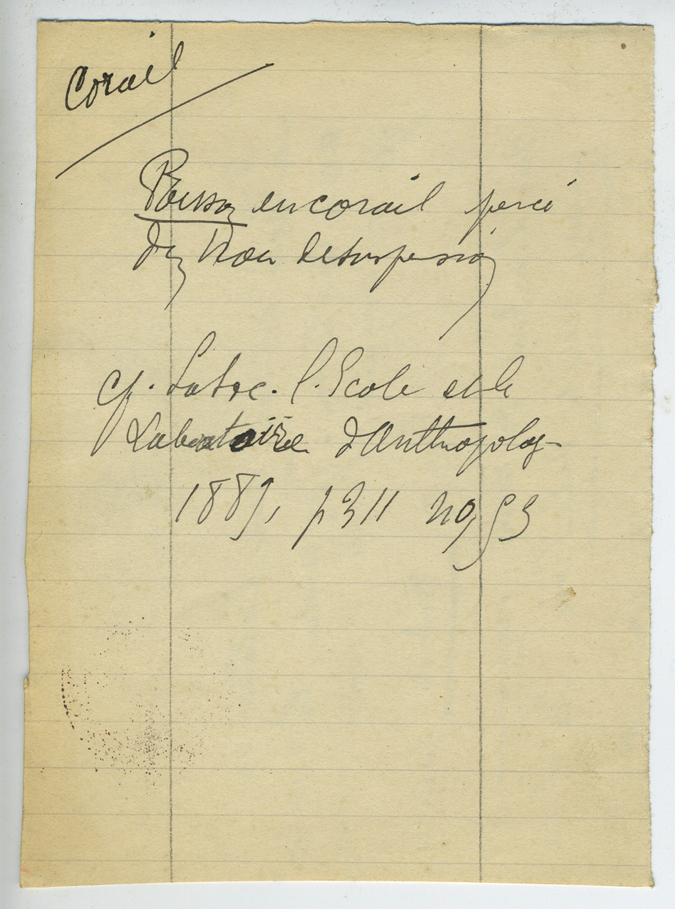 Corail
Poisson en corail percé
d'un trou de suspension
cf. Soc. l'Ecole et le
Laboratoire d'Anthropolog
1889, p 311 no 93